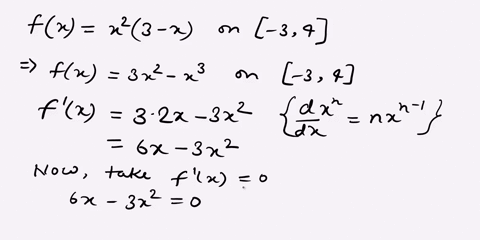 f(x) = x²(3-x) on [-3, 4]
⇒ f(x) = 3x² - x³ on [-3, 4]
f'(x) = 3·2x - 3x² {d/dx xⁿ = nxⁿ⁻¹}
= 6x - 3x²
Now, take f'(x) = 0
6x - 3x² = 0